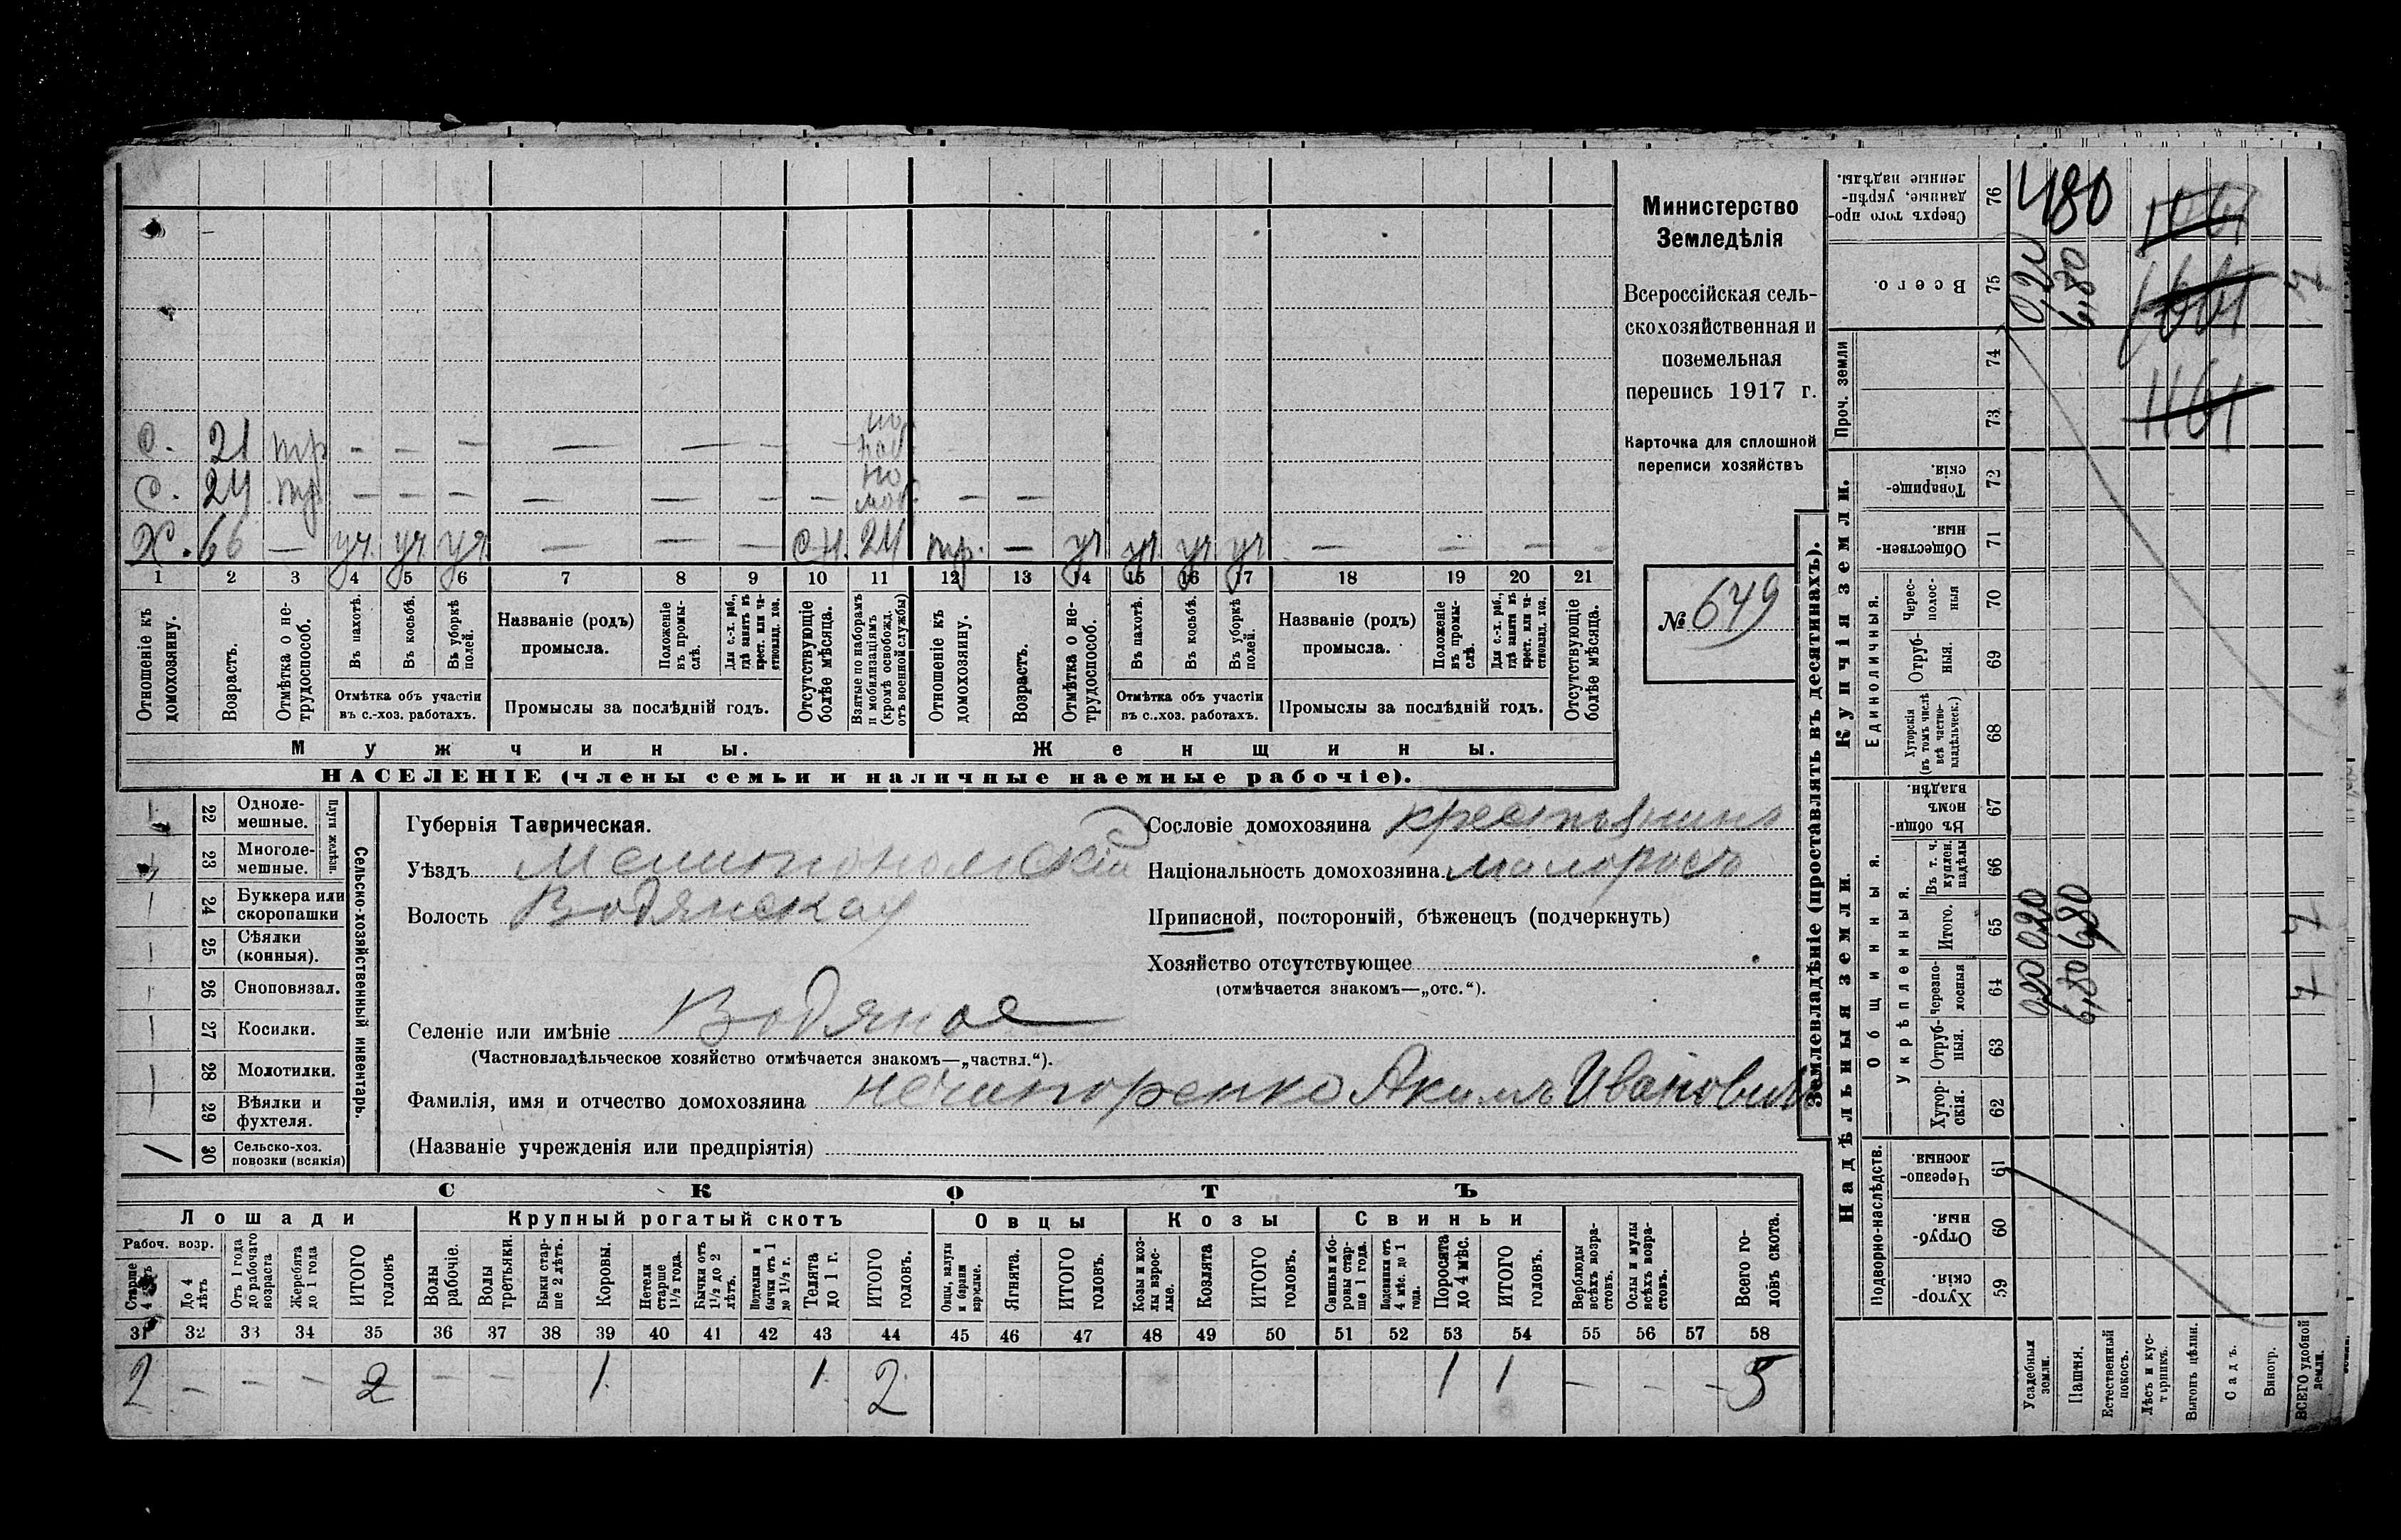 Министерство
Земледѣлія
Всероссійская сель-
скохозяйственная и
поземельная
перепись 1917 г.
Карточка для сплошной
переписи хозяйствъ
№ 649
с. 21 тр — — — — — — —
с. 24 тр — — — — — — — — —
Х. 66 — уч. уч уч — — — сн. 24 тр. — уч уч уч уч — — — —
1 2 3 4 5 6 7 8 9 10 11 12 13 14 15 16 17 18 19 20 21
Отношеніе къ домохозяину.
Возрастъ.
Отмѣтка о не-трудоспособ.
Въ пахотѣ.
Въ косьбѣ.
Въ уборкѣ полей.
Отмѣтка объ участіи
въ с.-хоз. работахъ.
Названіе (родъ)
промысла.
Положеніе въ промы-слѣ.
Для с.-х. раб., гдѣ занятъ въ крест. или ча-стновлад. хоз.
Промыслы за послѣдній годъ.
Отсутствующіе болѣе мѣсяца.
Взятые по наборамъ и мобилизаціямъ (кромѣ освобожд. отъ военной службы)
Отношеніе къ домохозяину.
Возрастъ.
Отмѣтка о не-трудоспособ.
Въ пахотѣ.
Въ косьбѣ.
Въ уборкѣ полей.
Отмѣтка объ участіи
въ с..хоз. работахъ.
Названіе (родъ)
промысла.
Положеніе въ промы-слѣ.
Для с.-х. раб., гдѣ занята въ крест. или ча-стновлад. хоз.
Промыслы за послѣдній годъ.
Отсутствующіе болѣе мѣсяца.
Мужчины. Женщины.
НАСЕЛЕНІЕ (члены семьи и наличные наемные рабочіе).
Сельско-хозяйственный инвентарь.
Плуги желѣзн.
— 22 Одноле-мешные.
— 23 Многоле-мешные.
— 24 Буккера или скоропашки
— 25 Сѣялки (конныя).
— 26 Сноповязал.
— 27 Косилки.
— 28 Молотилки.
— 29 Вѣялки и фухтеля.
1 30 Сельско-хоз. повозки (всякія)
Губернія Таврическая.
Уѣздъ Мелитопольскій
Волость Водянская
Селеніе или имѣніе Водяное
(Частновладѣльческое хозяйство отмѣчается знакомъ—„частвл.“).
Фамилія, имя и отчество домохозяина Нечипоренко Акимъ Ивановичъ
(Названіе учрежденія или предпріятія)
Сословіе домохозяина крестьянинъ
Національность домохозяина малоросъ
Приписной, посторонній, бѣженецъ (подчеркнуть)
Хозяйство отсутствующее
(отмѣчается знакомъ—„отс.“).
СКОТЪ
Лошади Крупный рогатый скотъ Овцы Козы Свиньи
Рабоч. возр.
Старше 4 лѣтъ
До 4 лѣтъ
Отъ 1 года до рабочаго возраста
Жеребята до 1 года
ИТОГО головъ
Волы рабочіе.
Волы третьяки.
Быки стар-ше 2 лѣтъ.
Коровы.
Нетели старше 1½ года.
Бычки отъ 1½ до 2 лѣтъ.
Подтелки и бычки отъ 1 до 1½ г.
Телята до 1 г.
ИТОГО головъ.
Овцы, валухи и бараны взрослые.
Ягнята.
ИТОГО головъ.
Козы и коз-лы взрос-лые.
Козлята
ИТОГО головъ.
Свиньи и бо-ровы стар-ше 1 года.
Подсвинки отъ 4 мѣс. до 1 года.
Поросята до 4 мѣс.
ИТОГО головъ.
Верблюды всѣхъ возра-стовъ.
Ослы и мулы всѣхъ возра-стовъ.
Всего го-ловъ скота.
31 32 33 34 35 36 37 38 39 40 41 42 43 44 45 46 47 48 49 50 51 52 53 54 55 56 57 58
2 — — — 2 — — 1 1 2 1 1 — — — 5
Землевладѣніе (проставлять въ десятинахъ).
Купчія земли.
Проч. земли
Единоличныя.
Надѣльныя земли.
Общинныя.
Укрѣпленныя.
Подворно-наслѣдств.
Сверхъ того про-данные, укрѣп-ленные надѣлы. 76 480
Всего. 75 0,20 6,80 7
74
73
1161
Товарище-скія. 72
Обществен-ныя. 71
Черес-полос-ныя 70
Отруб-ныя. 69
Хуторскія (въ томъ числѣ всѣ частно-владѣльческ.) 68
Въ общи-номъ владѣн. 67
Въ т. ч. куплен. надѣлы 66
Итого. 65 0,20 6,80 7
Черезпо-лосныя 64 0,20 6,80 7
Отруб-ныя. 63
Хутор-скія. 62
Черезпо-лосныя. 61
Отруб-ныя. 60
Хутор-скія. 59
Усадебныя земли.
Пашня.
Естественный покосъ.
Лѣсъ и кус-тарникъ.
Выгонъ цѣлин.
Садъ.
Виногр.
ВСЕГО удобной земли.